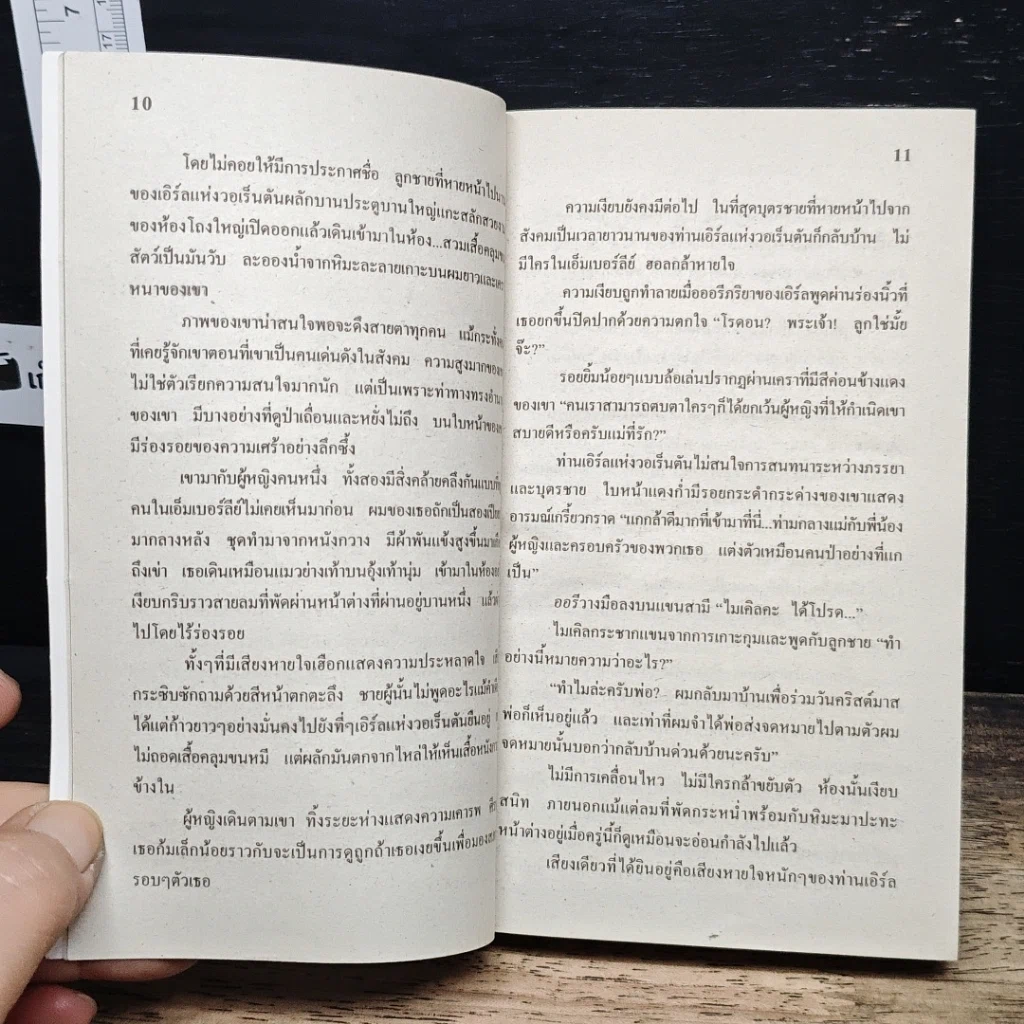 7
17
10
โดยไม่คอยให้มีการประกาศชื่อ ลูกชายที่หายหน้าไปนาน
ของเอิร์ลแห่งวอเร็นตันผลักบานประตูบานใหญ่แกะสลักสวยงาม
ของห้องโถงใหญ่เปิดออกแล้วเดินเข้ามาในห้อง...สวมเสื้อคลุมขน
สัตว์เป็นมันวับ ละอองน้ำจากหิมะละลายเกาะบนผมยาวและ
หนาของเขา
ภาพของเขาน่าสนใจพอจะดึงสายตาทุกคน แม้กระทั่ง
ที่เคยรู้จักเขาตอนที่เขาเป็นคนเด่นดังในสังคม ความสูงมากของ
ไม่ใช่ตัวเรียกความสนใจมากนัก แต่เป็นเพราะท่าทางทรงอำนาจ
ของเขา มีบางอย่างที่ดูป่าเถื่อนและหยั่งไม่ถึง บนใบหน้าของ
มีร่องรอยของความเศร้าอย่างลึกซึ้ง
เขามากับผู้หญิงคนหนึ่ง ทั้งสองมีสิ่งคล้ายคลึงกันแบบที่
คนในเอ็มเบอร์ลีย์ไม่เคยเห็นมาก่อน ผมของเธอถักเป็นสองเปีย
มากลางหลัง ชุดทำมาจากหนังกวาง มีผ้าพันแข้งสูงขึ้นมา
ถึงเข่า เธอเดินเหมือนแมวย่างเท้าบนอุ้งเท้านุ่ม เข้ามาในห้อง
เงียบกริบราวสายลมที่พัดผ่านหน้าต่างที่ผ่านอยู่บานหนึ่ง แล้ว
ไปโดยไร้ร่องรอย
ทั้งๆที่มีเสียงหายใจเฮือกแสดงความประหลาดใจ
กระซิบซักถามด้วยสีหน้าตกตะลึง ชายผู้นั้นไม่พูดอะไรแม้คำ
ได้แต่ก้าวยาวๆอย่างมั่นคงไปยังที่ๆเอิร์ลแห่งวอเร็นตันยืนอยู่
ไม่ถอดเสื้อคลุมขนหมี แต่ผลักมันตกจากไหล่ให้เห็นเสื้อหนัง
ข้างใน
ผู้หญิงเดินตามเขา ทิ้งระยะห่างแสดงความเคารพ
เธอก้มเล็กน้อยราวกับจะเป็นการดูถูกถ้าเธอเงยขึ้นเพื่อมอง
รอบๆตัวเธอ
11
ความเงียบยังคงมีต่อไป ในที่สุดบุตรชายที่หายหน้าไปจาก
สังคมเป็นเวลายาวนานของท่านเอิร์ลแห่งวอเร็นตันก็กลับบ้าน ไม่
มีใครในเอ็มเบอร์ลีย์ ฮอลกล้าหายใจ
ความเงียบถูกทำลายเมื่อออรีภริยาของเอิร์ลพูดผ่านร่องนิ้วที่
เธอยกขึ้นปิดปากด้วยความตกใจ “โรดอน? พระเจ้า! ลูกใช่มั้ย
จ๊ะ?”
รอยยิ้มน้อยๆแบบล้อเล่นปรากฏผ่านเคราที่มีสีค่อนข้างแดง
ของเขา “คนเราสามารถตบตาใครๆก็ได้ยกเว้นผู้หญิงที่ให้กำเนิดเขา
สบายดีหรือครับแม่ที่รัก?”
ท่านเอิร์ลแห่งวอเร็นตันไม่สนใจการสนทนาระหว่างภรรยา
และบุตรชาย ใบหน้าแดงก่ำมีรอยกระดำกระด่างของเขาแสดง
อารมณ์เกรี้ยวกราด “แกกล้าดีมากที่เข้ามาที่นี่...ท่ามกลางแม่กับพี่น้อง
ผู้หญิงและครอบครัวของพวกเธอ แต่งตัวเหมือนคนป่าอย่างที่แก
เป็น”
ออรีวางมือลงบนแขนสามี “ไมเคิลคะ ได้โปรด...”
ไมเคิลกระชากแขนจากการเกาะกุมและพูดกับลูกชาย “ทำ
อย่างนี้หมายความว่าอะไร?”
“ทำไมล่ะครับพ่อ? ผมกลับมาบ้านเพื่อร่วมวันคริสต์มาส
พ่อก็เห็นอยู่แล้ว และเท่าที่ผมจำได้พ่อส่งจดหมายไปตามตัวผม
จดหมายนั้นบอกว่ากลับบ้านด่วนด้วยนะครับ”
ไม่มีการเคลื่อนไหว ไม่มีใครกล้าขยับตัว ห้องนั้นเงียบ
สนิท ภายนอกแม้แต่ลมที่พัดกระหน่ำพร้อมกับหิมะมาปะทะ
หน้าต่างอยู่เมื่อครู่นี้ก็ดูเหมือนจะอ่อนกำลังไปแล้ว
เสียงเดียวที่ได้ยินอยู่คือเสียงหายใจหนักๆของท่านเอิร์ล